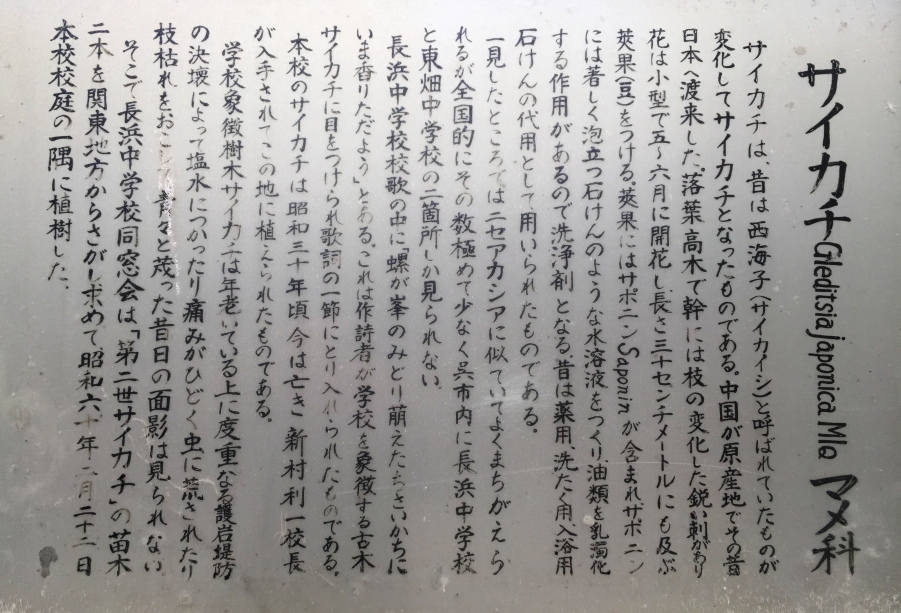 サイカチ Gleditsia japonica Mlq マメ科
サイカチは、昔は西海子(サイカイシ)と呼ばれていたものが
変化してサイカチとなったものである。中国が原産地でその昔
日本へ渡来した。落葉高木で幹には枝の変化した鋭い刺があり
花は小型で五〜六月に開花し長さ三十センチメートルにも及ぶ
莢果(豆)をつける。莢果にはサポニンSaponinが含まれサポニン
には著しく泡立つ石けんのような水溶液をつくり、油類を乳濁化
する作用があるので洗浄剤となる。昔は薬用、洗たく用、入浴用
石けんの代用として用いられたものである。
一見したところではニセアカシアに似ていてよくまちがえら
れるが全国的にその数極めて少なく呉市内に長浜中学校
と東畑中学校の二箇所しか見られない。
長浜中学校校歌の中に「螺が峯のみどり萌えたちさいかちに
いま香りただよう」とある。これは作詩者が学校を象徴する古木
サイカチに目をつけられ歌詞の一節にとり入れられたものである。
本校のサイカチは昭和三十年頃 今は亡き 新村利一校長
が入手されてこの地に植えられたものである。
学校象徴樹木サイカチは年老いている上に度重なる護岩堤防
の決壊によって塩水につかったり痛みがひどく虫に荒されたり
枝枯れをおこして青々と茂った昔日の面影は見られない
そこで長浜中学校同窓会は「第二世サイカチ」の苗木
二本を関東地方からさがし求めて、昭和六十年二月二十二日
本校校庭の一隅に植樹した。